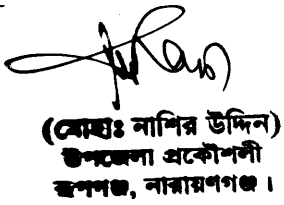 (মোহাঃ নাশির উদ্দিন)
উপজেলা প্রকৌশলী
রূপগঞ্জ, নারায়ণগঞ্জ।